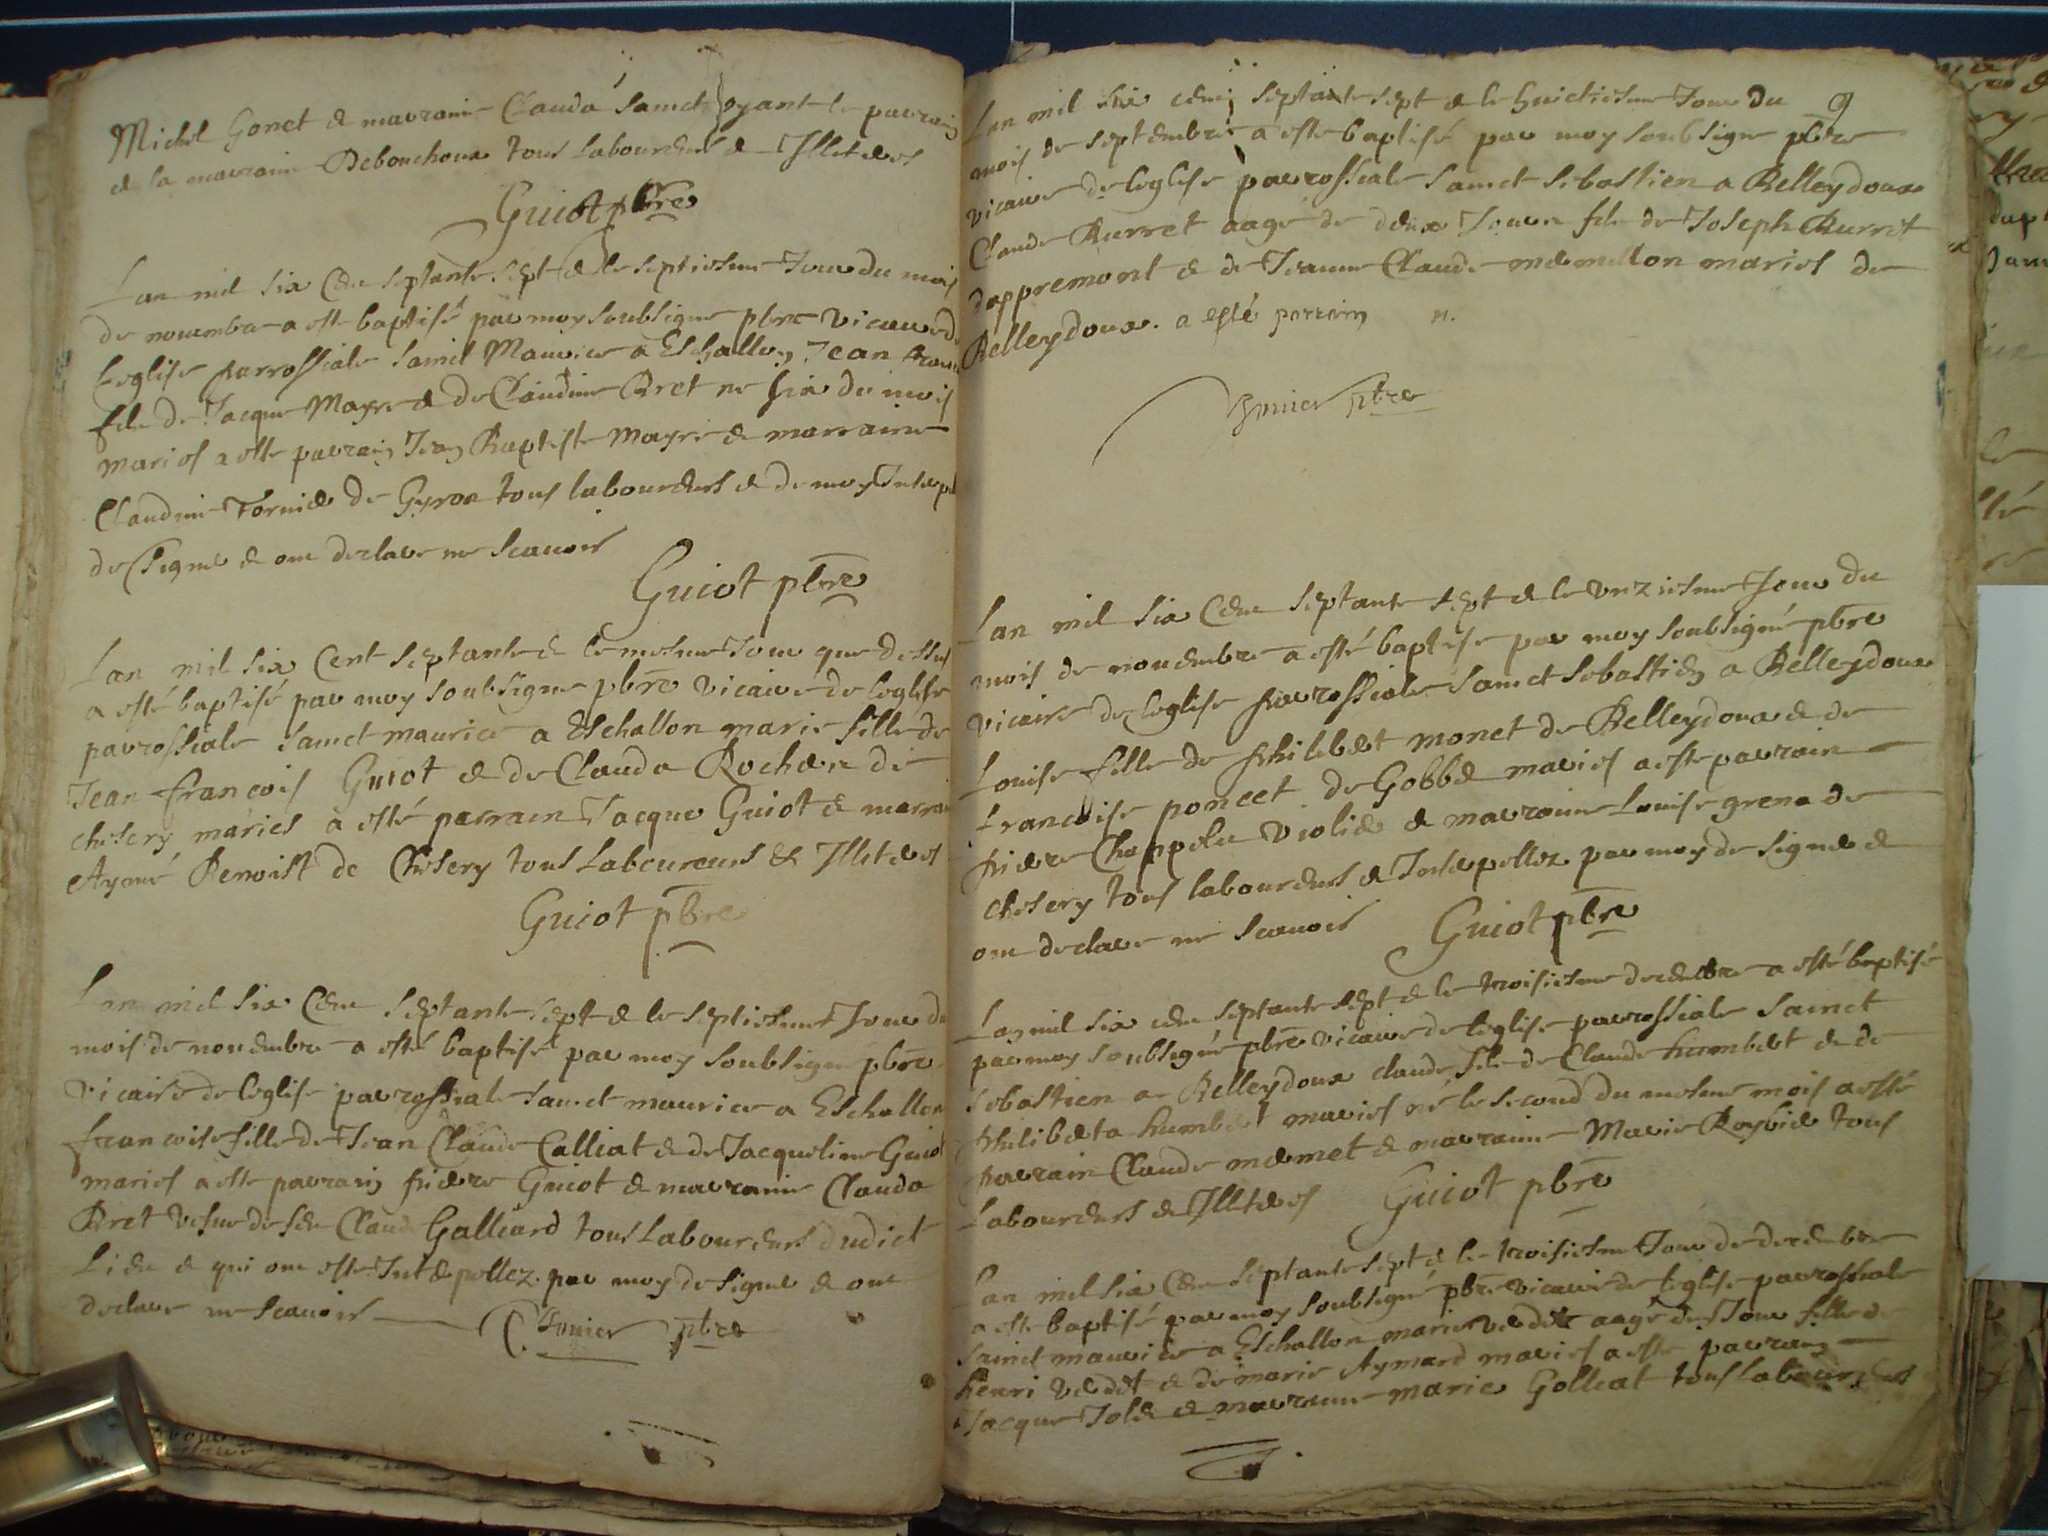 Michel Gonet & marraine Clauda Sainct oyant le parrain
& la marraine Debouchoux tous laboureurs & Illiteres
Guiot pbre
Lan mil six cens septante sept & le septiesme Jour du mois
de novembre a este baptisé par moy soubsigne pbre vicaire de
leglise parrossiale Sainct Maurice a Eschallon Jean
fils de Jacque Mayre & de Claudine Bret ne six du mois
mariés a este parrain Jean Baptiste Mayre & marraine
Claudine Tornier de Gyron tous laboureurs & de moy
de signer & ont declare ne scavoir
Guiot pbre
Lan mil six Cent septante & le mesme Jour que dessus
a esté baptisé par moy soubsigne pbre vicaire de leglise
parrossiale Sainct maurice a Eschallon marie fille de
Jean françois Guiot & de Clauda Rochez de
chesery mariés a esté parrain Jacque Guiot & marraine
Aymé Benoist de Chesery tous Laboureurs & Illiteres
Guiot pbre
Lan mil six Cens septante sept & le septiesme Jour du
mois de novembre a esté baptisé par moy soubsigne pbre
vicaire de leglise parrossiale Sainct maurice a Eschallon
francoise fille de Jean Claude Calliat & de Jacqueline Guiot
mariés a este parrain pierre Guiot & marraine Clauda
Bret vefve de feu Claude Galliard tous Laboureurs dudict
Lieu & qui ont este Interpellez par moy de signer & ont
declare ne scavoir pbre
Lan mil six cens septante sept & le huictiesme Jour du
mois de septembre a esté baptisé par moy soubsigne pbre
vicaire de leglise parrossiale Sainct sebastien a Belleydoux
Claude Burret aagé de deux Jours fils de Joseph Burret
dappremont & de Jeanne Claude mermillon mariés de
Belleydoux. a esté parrain n.
pbre
Lan mil six Cens septante sept & le unziesme Jour du
mois de novembre a esté baptise par moy soubsigné pbre
vicaire de leglise parrossiale Sainct sebastien a Belleydoux
Louise fille de philibert monet de Belleydoux & de
francoise poncet de Gobbet mariés a este parrain
pierre Chappelu & marraine Louise grena de
chesery tous laboureurs & Interpellez par moy de signer &
ont declare ne scavoir Guiot pbre
Lan mil six cens septante sept & le troisiesme decembre a esté baptisé
par moy soubsigné pbre vicaire de leglise parrossiale Sainct
sebastien a Belleydoux claude fils de Claude humbert & de
philiberta humbert mariés né le second du mesme mois a esté
parrain Claude mermet & marraine Marie Roybier tous
Laboureurs & Illiteres Guiot pbre
Lan mil six Cens septante sept & le troisiesme Jour de decembre
a este baptisé par moy soubsigné pbre vicaire de leglise parrossiale
Sainct maurice a Eschallon marie aagé du Jour fille de
henri & de marie Aymard mariés a este parrain
Jacque & marraine marie Golliat tous laboureurs